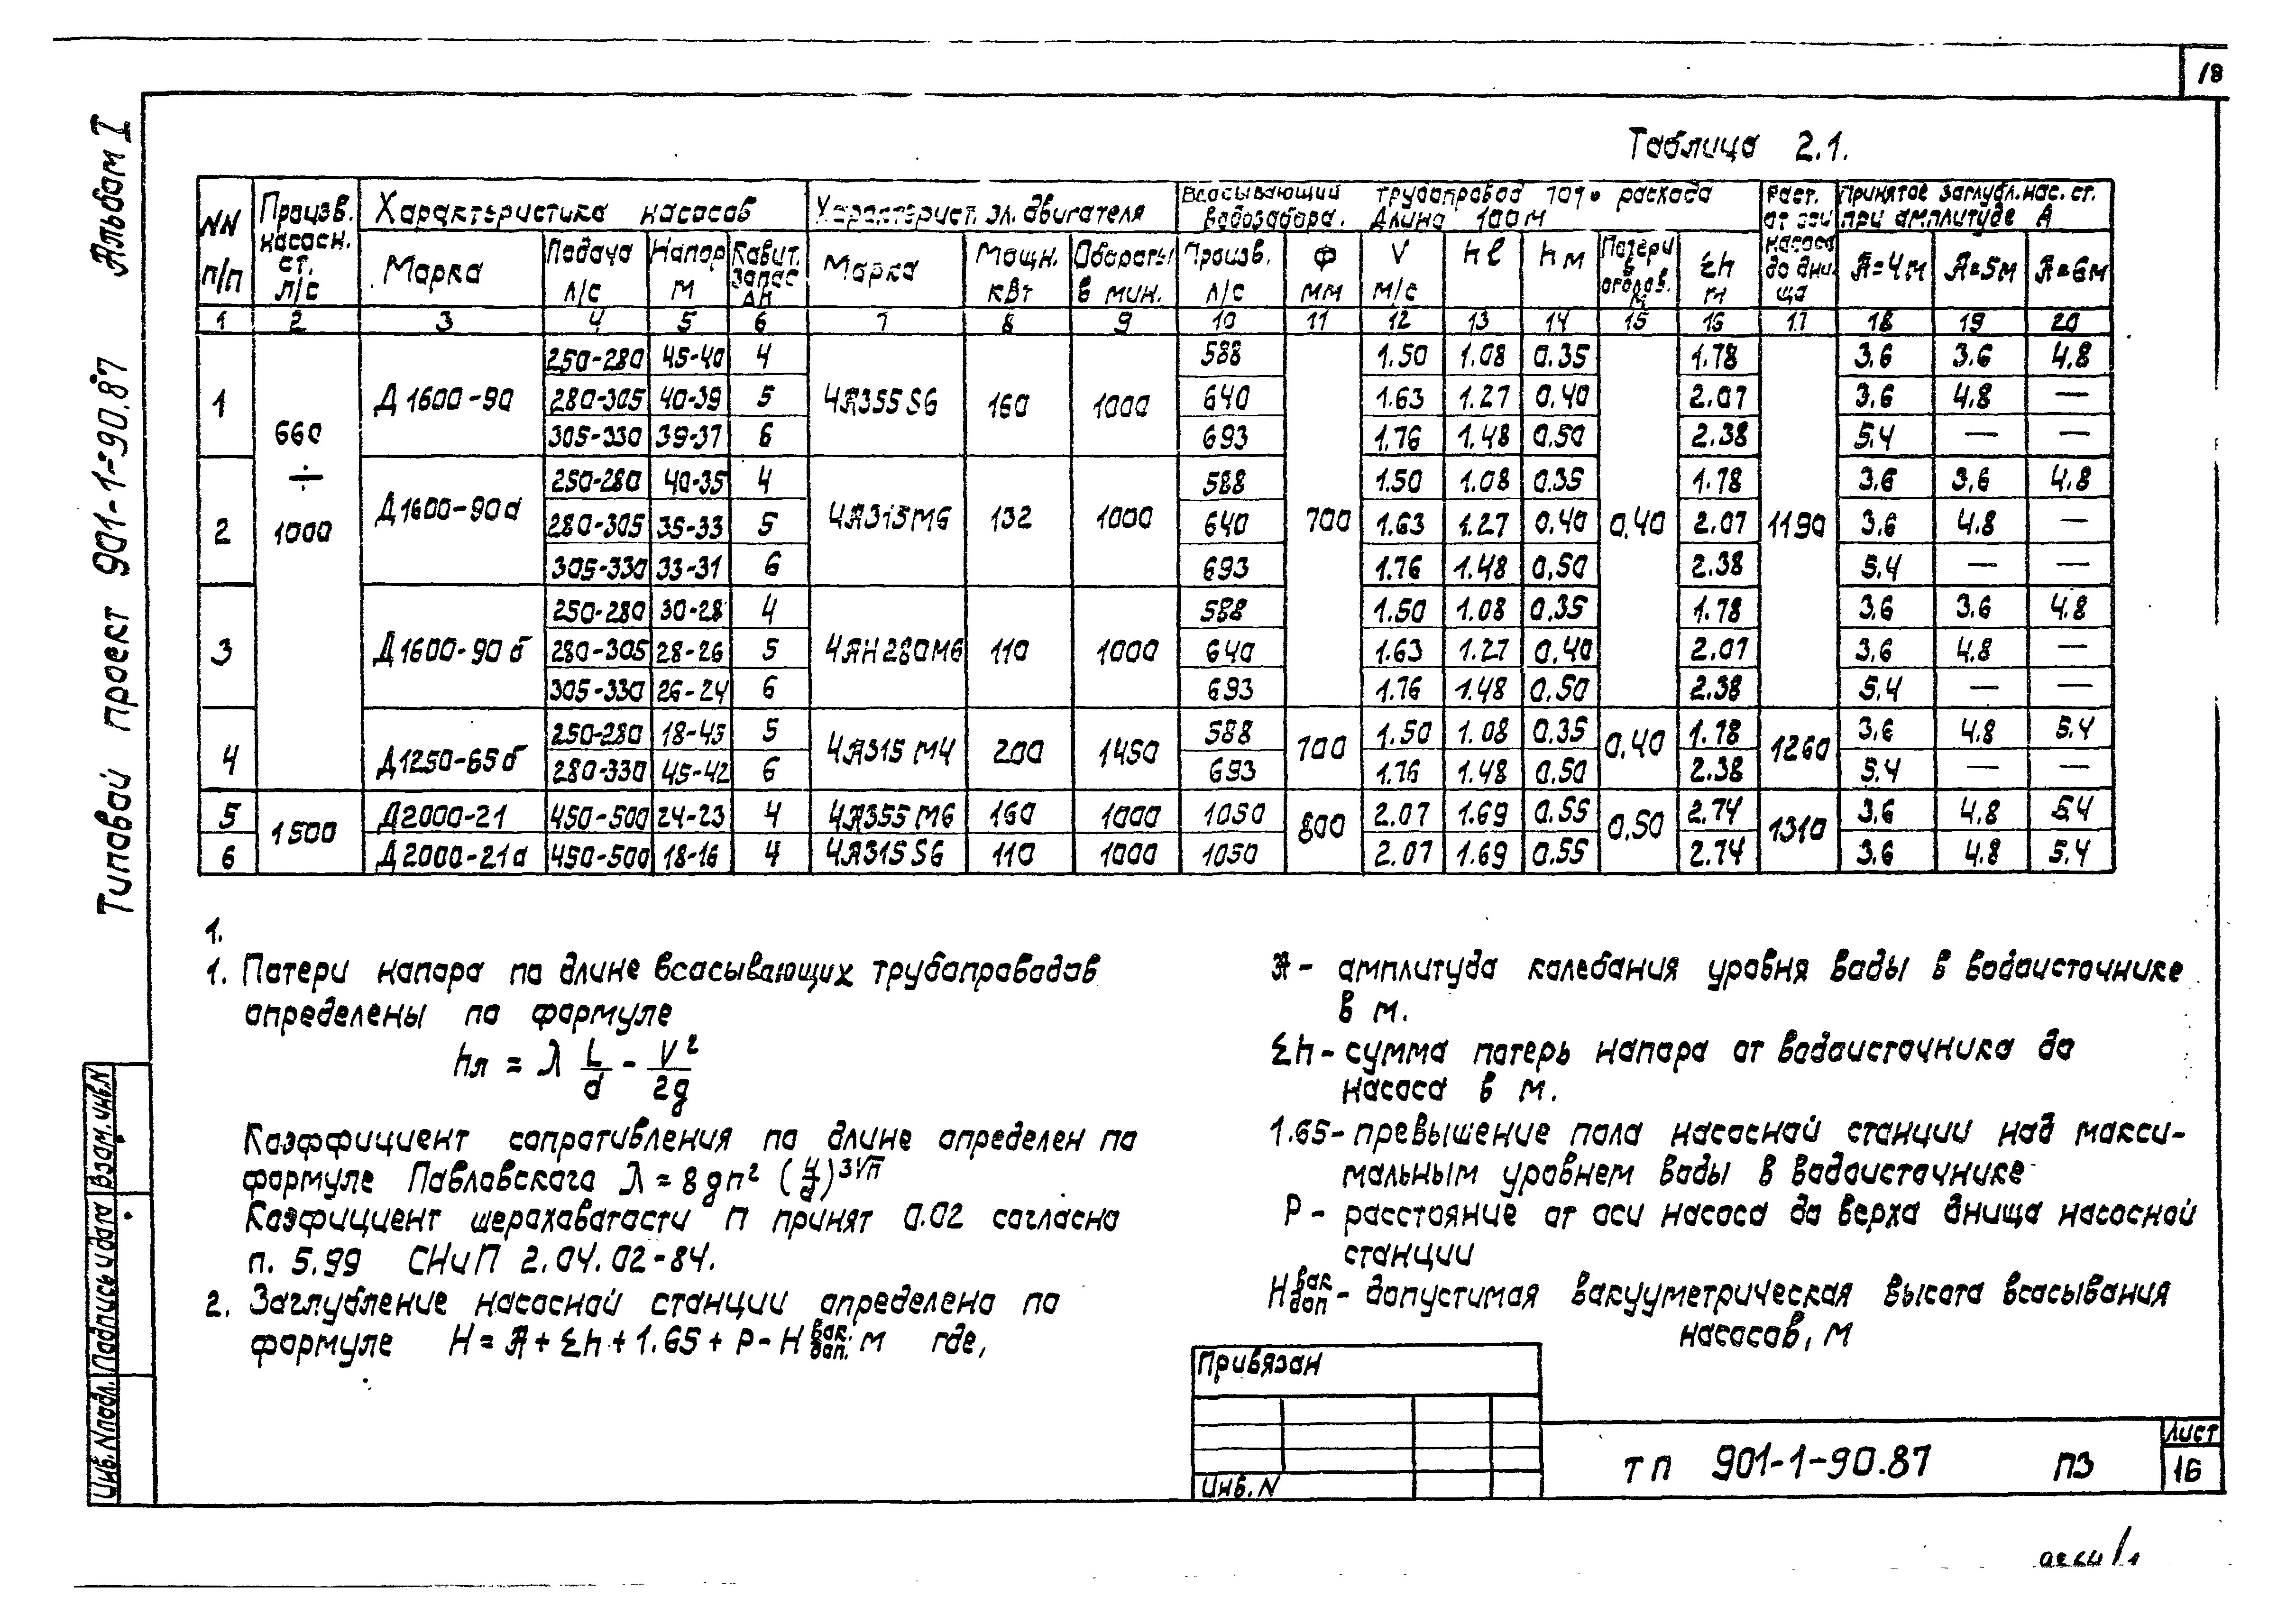 18
Альбом I
Типовой проект 901-1-90.87
Таблица 2.1.
NN п/п | Произв. насосн. ст. л/с | Характеристика насосов | Характерист. эл. двигателя | Всасывающий трубопровод 70% расхода водозабора. Длина 100м | Раст. от оси насоса до днища | Принятое заглубл. нас. ст. при амплитуде А
Марка | Подача л/с | Напор м | Кавит. запас ΔН | Марка | Мощн. кВт | Обороты в мин. | Произв. л/с | Ф мм | V м/с | hℓ | hм | Потери в оголов. м | Σh м | А=4м | А=5м | А=6м
1 | 2 | 3 | 4 | 5 | 6 | 7 | 8 | 9 | 10 | 11 | 12 | 13 | 14 | 15 | 16 | 17 | 18 | 19 | 20
250-280 | 45-40 | 4 | 588 | 1.50 | 1.08 | 0.35 | 1.78 | 3.6 | 3.6 | 4.8
1 | 660 ÷ 1000 | Д1600-90 | 280-305 | 40-39 | 5 | 4А355S6 | 160 | 1000 | 640 | 1.63 | 1.27 | 0.40 | 2.07 | 3.6 | 4.8 | —
305-330 | 39-37 | 6 | 693 | 1.76 | 1.48 | 0.50 | 2.38 | 5.4 | — | —
250-280 | 40-35 | 4 | 588 | 1.50 | 1.08 | 0.35 | 1.78 | 3.6 | 3.6 | 4.8
2 | Д1600-90а | 280-305 | 35-33 | 5 | 4А315М6 | 132 | 1000 | 640 | 700 | 1.63 | 1.27 | 0.40 | 0.40 | 2.07 | 1190 | 3.6 | 4.8 | —
305-330 | 33-31 | 6 | 693 | 1.76 | 1.48 | 0.50 | 2.38 | 5.4 | — | —
250-280 | 30-28 | 4 | 588 | 1.50 | 1.08 | 0.35 | 1.78 | 3.6 | 3.6 | 4.8
3 | Д1600-90б | 280-305 | 28-26 | 5 | 4АН280М6 | 110 | 1000 | 640 | 1.63 | 1.27 | 0.40 | 2.07 | 3.6 | 4.8 | —
305-330 | 26-24 | 6 | 693 | 1.76 | 1.48 | 0.50 | 2.38 | 5.4 | — | —
4 | Д1250-65б | 250-280 | 18-45 | 5 | 4А315М4 | 200 | 1450 | 588 | 700 | 1.50 | 1.08 | 0.35 | 0.40 | 1.78 | 1260 | 3.6 | 4.8 | 5.4
280-330 | 45-42 | 6 | 693 | 1.76 | 1.48 | 0.50 | 2.38 | 5.4 | — | —
5 | 1500 | Д2000-21 | 450-500 | 24-23 | 4 | 4А355М6 | 160 | 1000 | 1050 | 800 | 2.07 | 1.69 | 0.55 | 0.50 | 2.74 | 1310 | 3.6 | 4.8 | 5.4
6 | Д2000-21а | 450-500 | 18-16 | 4 | 4А315S6 | 110 | 1000 | 1050 | 2.07 | 1.69 | 0.55 | 2.74 | 3.6 | 4.8 | 5.4
1.
1. Потери напора по длине всасывающих трубопроводов
определены по формуле
hл = λ L/d - V²/2g
Коэффициент сопротивления по длине определен по
формуле Павловского λ = 8gn² (4/d)^3√n
Коэфициент шероховатости п принят 0.02 согласно
п. 5.99 СНиП 2.04.02-84.
2. Заглубление насосной станции определено по
формуле Н = А + Σh + 1.65 + Р - Н вак. доп. м где,
А - амплитуда колебания уровня воды в водоисточнике
в м.
Σh - сумма потерь напора от водоисточника до
насоса в м.
1.65 - превышение пола насосной станции над макси-
мальным уровнем воды в водоисточнике
Р - расстояние от оси насоса до верха днища насосной
станции
Н вак доп - допустимая вакууметрическая высота всасывания
насосов, м
Привязан
Инв. N
ТП 901-1-90.87 ПЗ
Лист
16
Взам. инв. N
Подпись и дата
Инв. N подл.